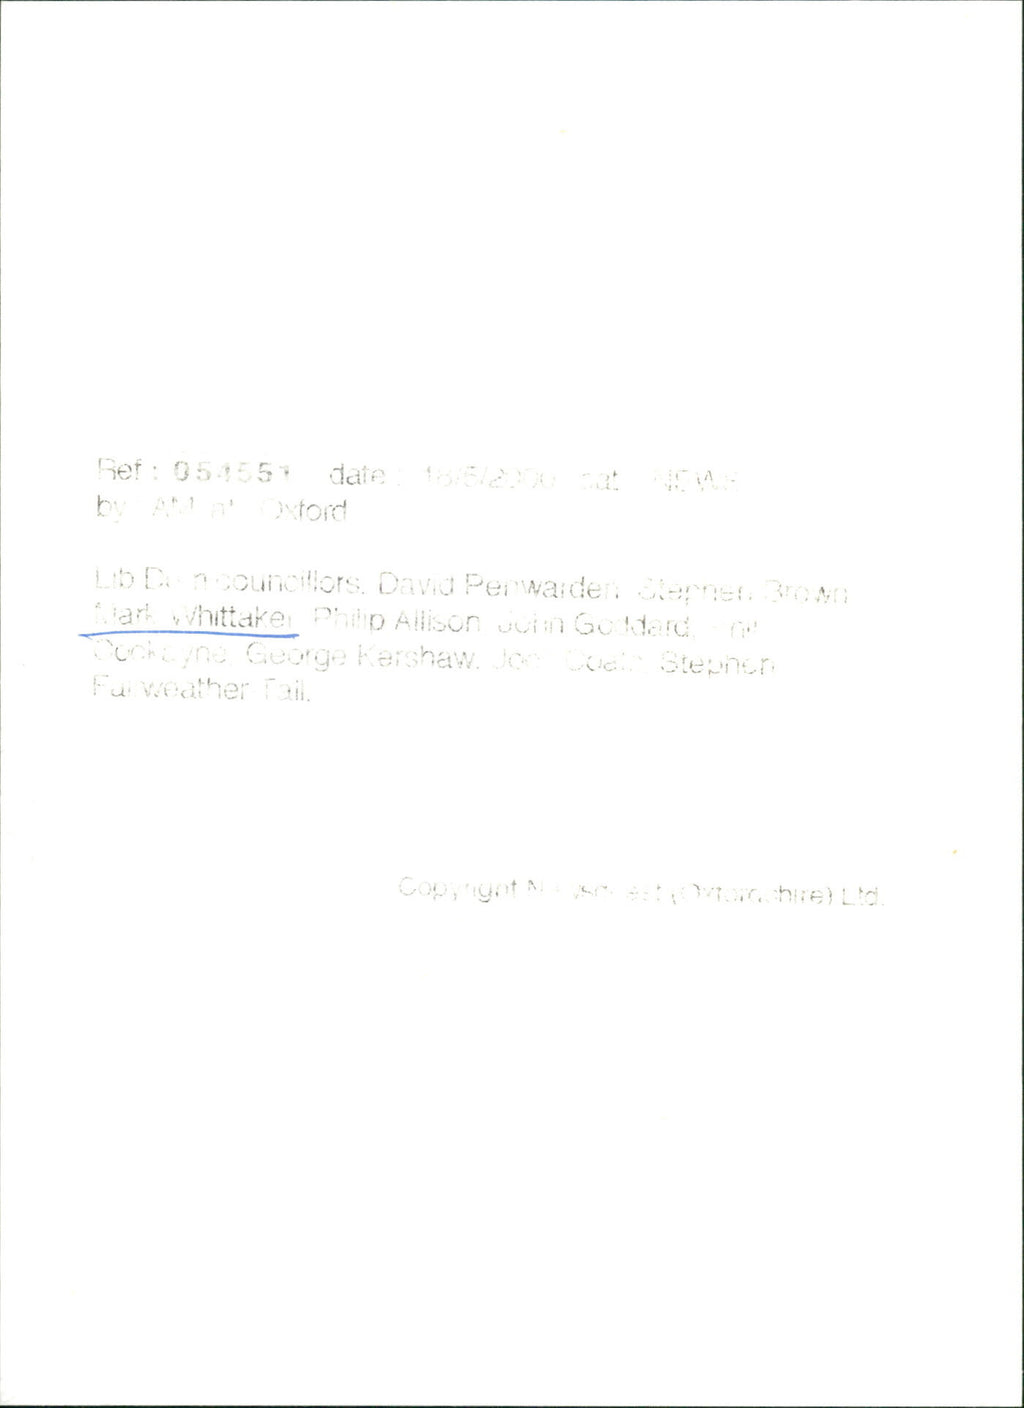 Ref: 054551 date: 18/5/2000 cat: NEWS
by: AM at: Oxford
Lib Dem councillors. David Penwarden, Stephen Brown
Mark Whittaker, Philip Allison, John Goddard,
Cockayne, George Kershaw, Stephen
Fairweather-Tall.
Copyright Newsquest (Oxfordshire) Ltd.